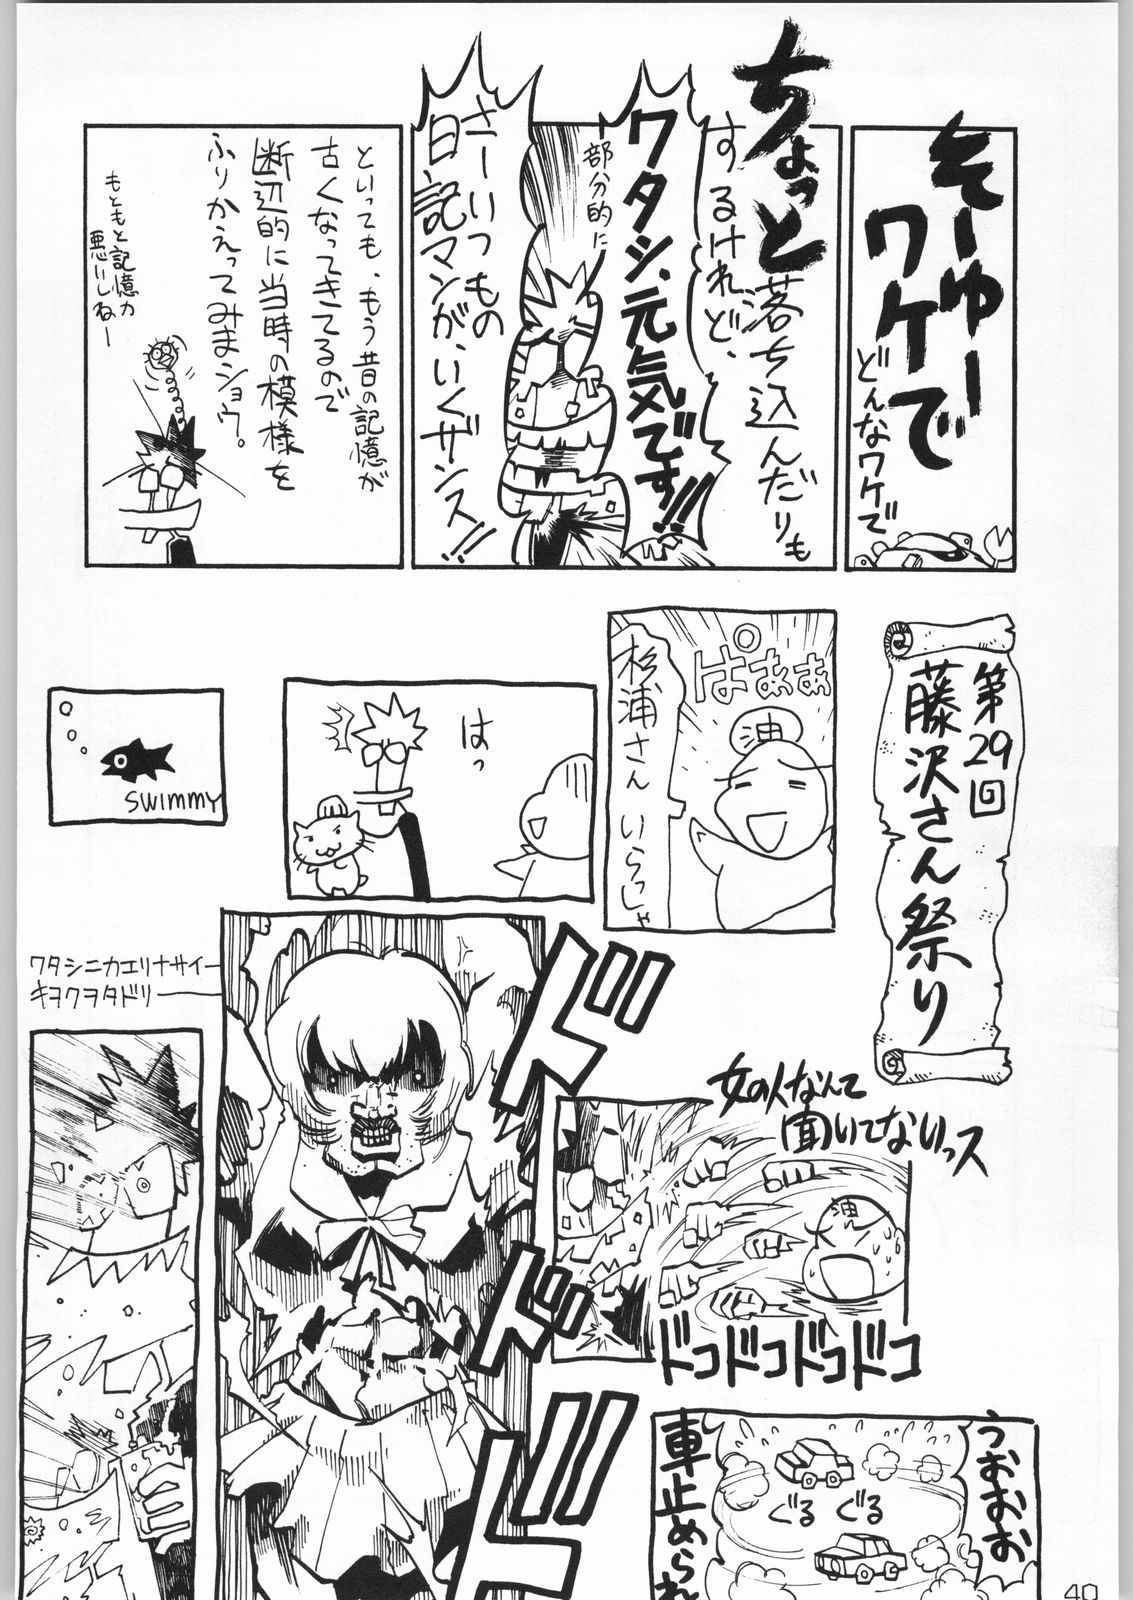 そーゆー
ワケで
どんなワケで
ちょっと落ち込んだりも
するけれど、
ワタシ、元気です!!
部分的に
さーいつもの
日記マンガ、いくザンス!!
といっても、もう昔の記憶が
古くなってきてるので
断辺的に当時の模様を
ふりかえってみまショウ。
もともと記憶力
悪いしねー
第29回
藤沢さん祭り
ぱあぁぁ
油
杉浦さん いらっしゃ
はっ
SWIMMY
ワタシニカエリナサイー
キヲクヲタドリ――
ドドドド
女の人なんて
聞いてないっス
油
ドコドコドコドコ
うおおお
ぐる
ぐる
車止められ
40